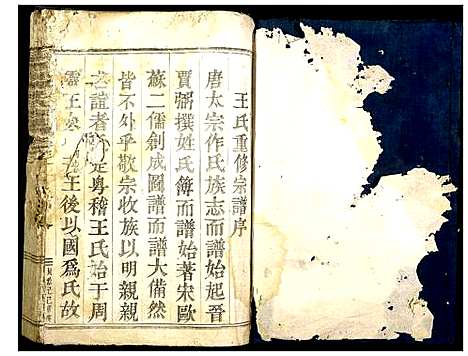 王氏重修宗譜序
唐太宗作氏族志而譜始起晉
賈弼撰姓氏簿而譜始著宋歐
蘇二儒創成圖譜而譜大備然
皆不外乎敬宗收族以明親親
之誼者 是粵稽王氏始于周
靈王 王後以國爲氏故